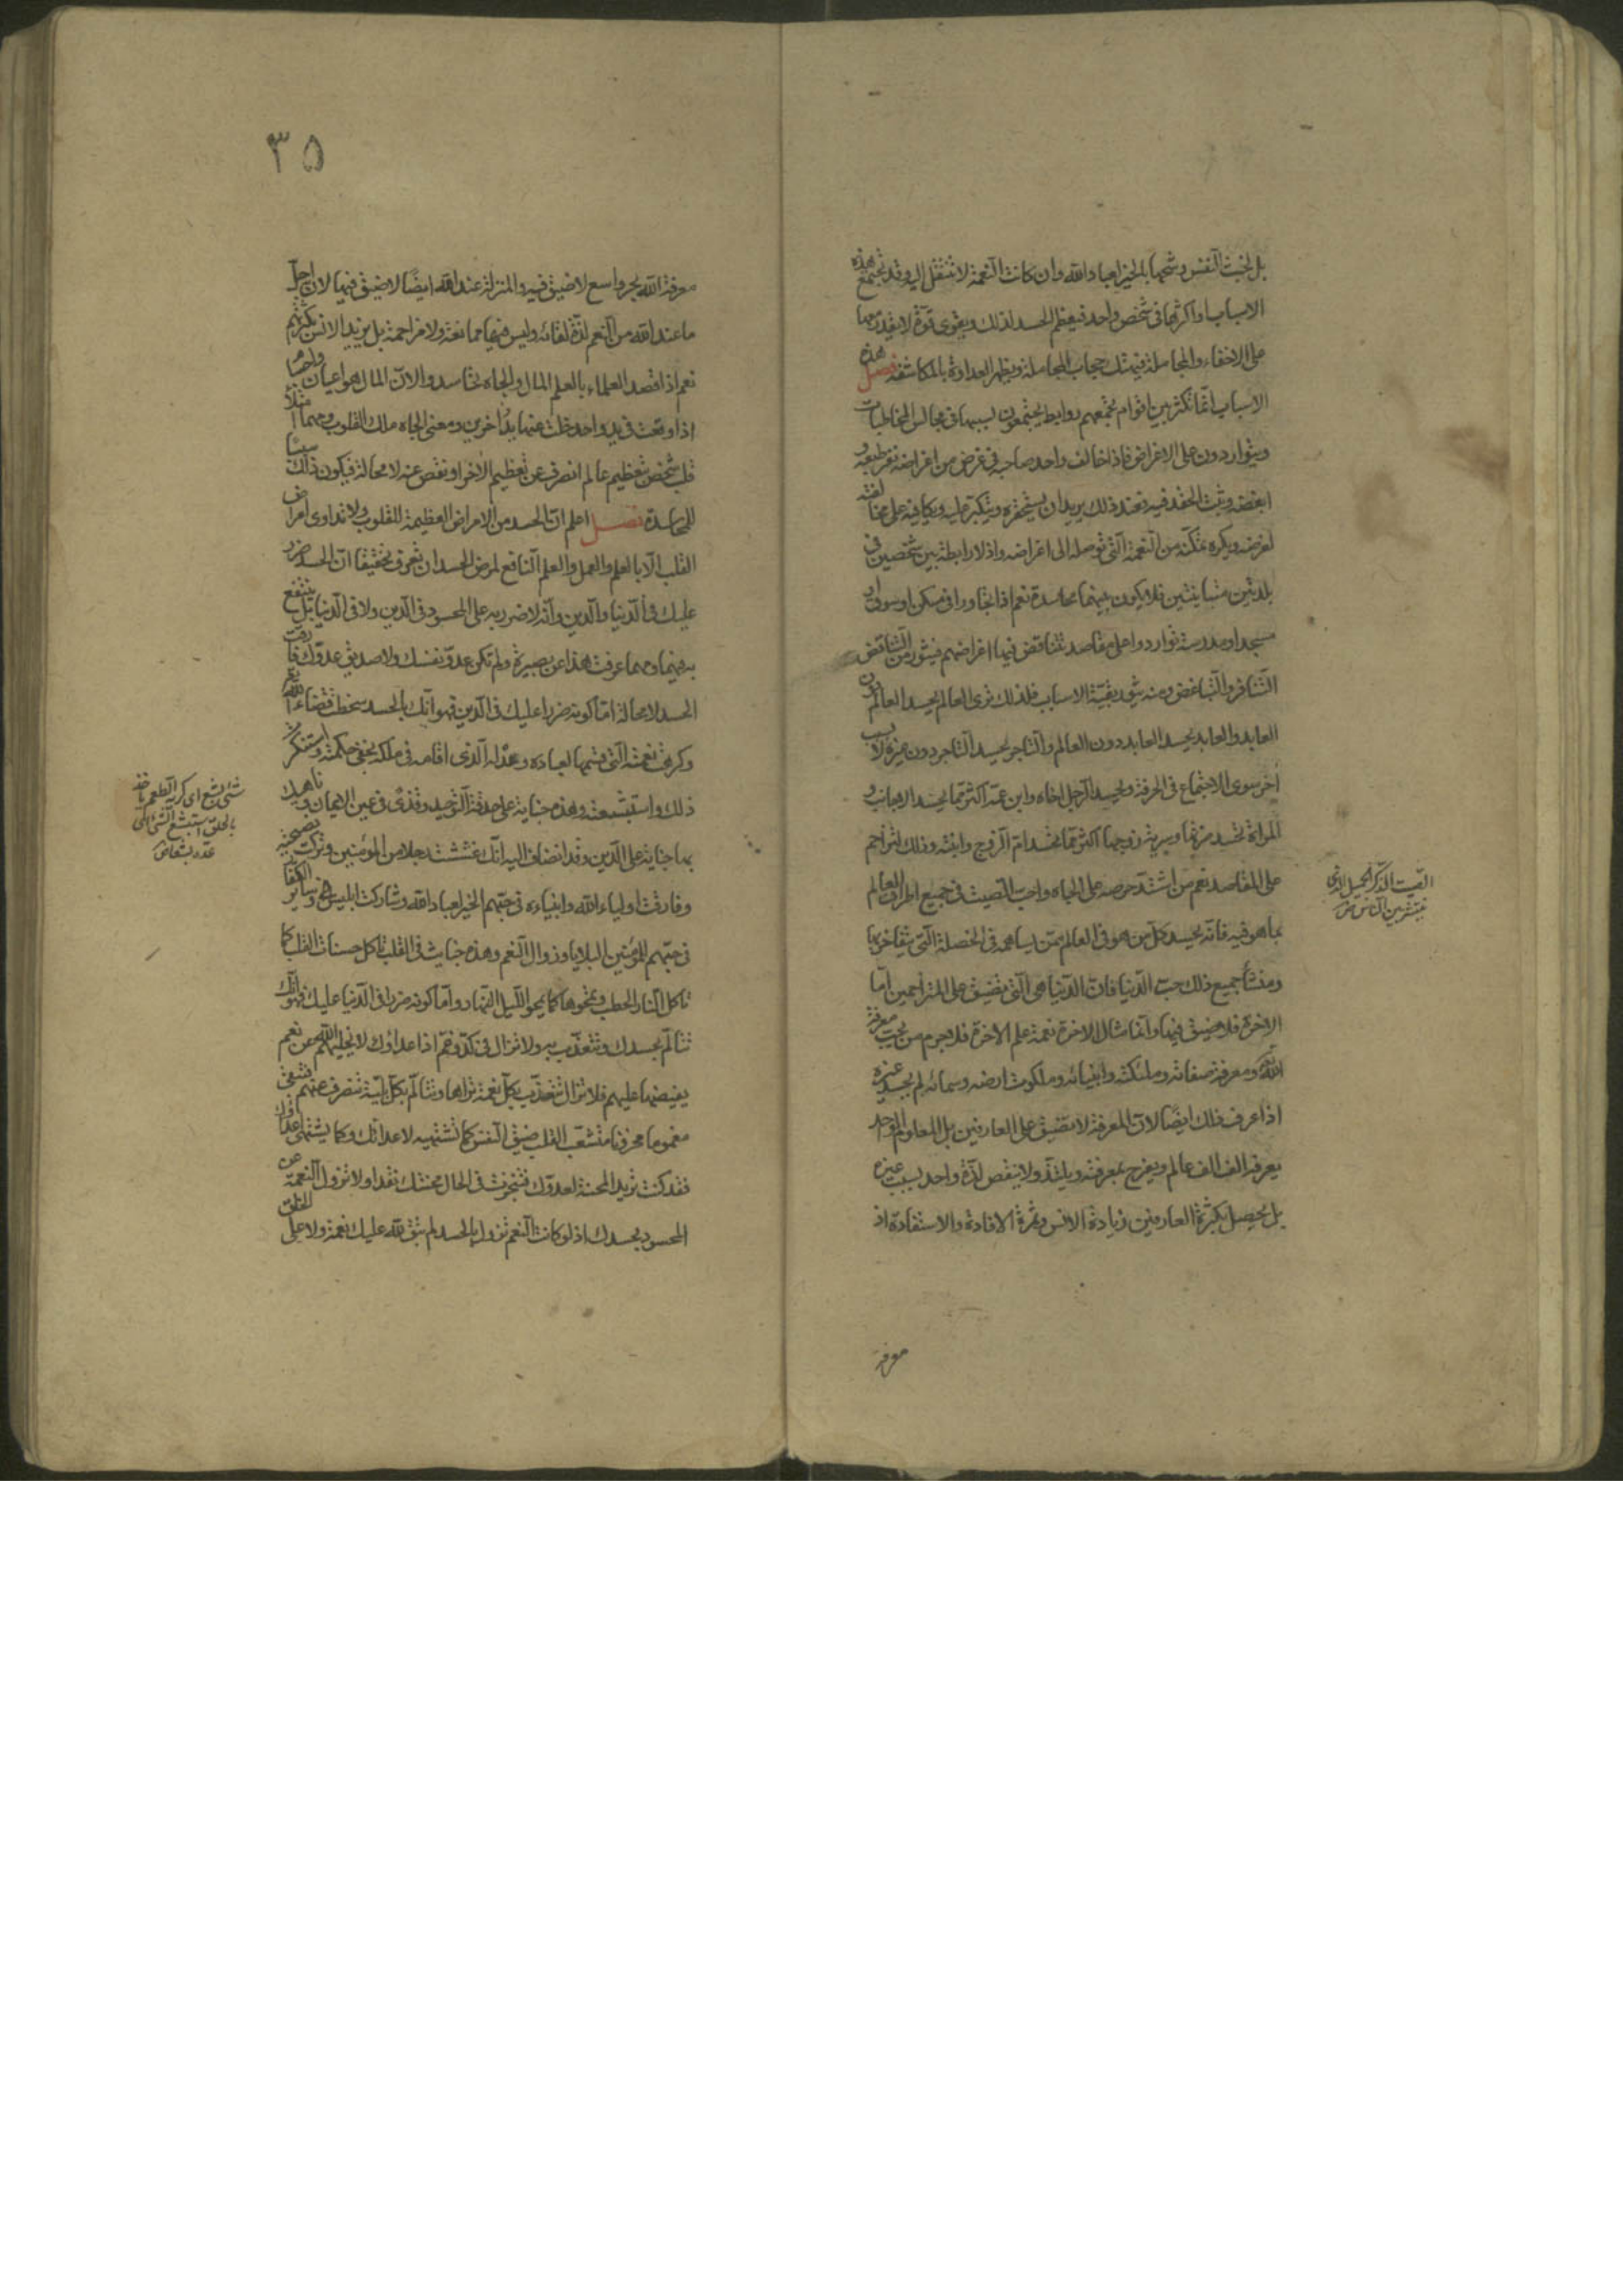 بل لخبث النفس وشحها بالخير لعباد الله وان كانت النعمة لا تنتقل اليه وقد تجتمع هذه
الاسباب او اكثرها في شخص واحد فيعظم الحسد لذلك ويقوى قوة لا يقدر معها
على الاخفاء والمجاملة فيهتك حجاب المجاملة ويظهر العداوة بالمكاشفة فصل هذه
الاسباب انما تكثر بين اقوام تجمعهم روابط يجتمعون بسببها في مجالس المخاطبات
ويتواردون على الاغراض فاذا خالف واحد صاحبه في غرض من اغراضه نفر طبعه و
ابغضه وثبت الحقد فيه فعند ذلك يريد ان يستحقره ويتكبر عليه ويكافيه على مخالفته
لغرضه ويكره تمكنه من النعمة التي توصله الى اغراضه واذ لا رابطة بين شخصين في
بلدتين متنائيتين فلا يكون بينهما محاسدة نعم اذا تجاورا في مسكن او سوق او
مسجد او مدرسة تواردوا على مقاصد تتناقض فيها اغراضهم فيثور من التناقض
التنافر والتباغض ومنه يثور بقية الاسباب فلذلك ترى العالم يحسد العالم دون
العابد والعابد يحسد العابد دون العالم والتاجر يحسد التاجر دون غيره لا بسبب
اخر سوى الاجتماع في الحرفة ويحسد الرجل اخاه وابن عمه اكثر مما يحسد الاجانب و
المراة تحسد ضرتها وسرية زوجها اكثر مما تحسد ام الزوج وابنته وذلك لتزاحم
على المقاصد نعم من اشتد حرصه على الجاه واحب الصيت في جميع اطراف العالم
بما هو فيه فانه يحسد كل من هو في العالم ممن يساهمه في الخصلة التي يتفاخر بها
ومنشأ جميع ذلك حب الدنيا فان الدنيا هي التي تضيق على المتزاحمين اما
الاخرة فلا ضيق فيها وانما مثال الاخرة نعمة علم الاخرة فلا جرم من يحب معرفة
الله تع ومعرفة صفاته وملئكته وانبيائه وملكوت ارضه وسمائه لم يحسد غيره
اذا عرف ذلك ايضا لان المعرفة لا تضيق على العارفين بل المعلوم الواحد
يعرفه الف الف عالم ويفرح بمعرفته ويلتذ ولا ينقص لذة واحد بسبب غيره
بل يحصل بكثرة العارفين زيادة الانس وثمرة الافادة والاستفادة اذ
معرفة
الصيت الذكر الجميل الذي
ينتشر بين الناس
٣٥
معرفة الله بحر واسع لا ضيق فيه والمنزلة عند الله ايضا لا ضيق فيها لان اجل
ما عند الله من النعم لذة لقائه وليس فيها ممانعة ولا مزاحمة بل يزيد الانس بكثرتهم
نعم اذا قصد العلماء بالعلم المال والجاه تحاسدوا لان المال هو اعيان واجسام
اذا وقعت في يد واحد خلت عنها يد اخرين ومعنى الجاه ملك القلوب ومهما امتلأ
قلب شخص بتعظيم عالم انصرف عن تعظيم الاخر او نقص عنه لا محالة فيكون ذلك سببا
للمحاسدة فصل اعلم ان الحسد من الامراض العظيمة للقلوب ولا تداوى امراض
القلب الا بالعلم والعمل والعلم النافع لمرض الحسد ان تعرف تحقيقا ان الحسد ضرر
عليك في الدنيا والدين وانه لا ضرر به على المحسود في الدين ولا في الدنيا بل ينتفع
به فيهما ومهما عرفت هذا عن بصيرة ولم تكن عدو نفسك ولا صديق عدوك فارقت
الحسد لا محالة اما كونه ضررا عليك في الدين فهو انك بالحسد سخطت قضاء الله تع
وكرهت نعمته التي قسمها لعباده وعدله الذي اقامه في ملكه بخفي حكمته واستنكرت
ذلك واستبشعته وهذه جناية على حدقة التوحيد وقذى في عين الايمان وناهيك
بها جناية على الدين وقد انضاف اليه انك غششت رجلا من المؤمنين وتركت نصيحته
وفارقت اولياء الله وانبياءه في حبهم الخير لعباد الله وشاركت ابليس وسائر الكفار
في حبهم للمؤمنين البلايا وزوال النعم وهذه خبائث في القلب تاكل حسنات القلب كما
تاكل النار الحطب وتمحوها كما يمحو الليل النهار واما كونه ضررا في الدنيا عليك فهو انك
تتألم بحسدك وتتعذب به ولا تزال في كد وغم اذ اعداؤك لا يخليهم الله عن نعم
يفيضها عليهم فلا تزال تتعذب بكل نعمة تراها وتتألم بكل بلية تنصرف عنهم فتبقى
مغموما محزونا متشعب القلب ضيق النفس كما تشتهيه لاعدائك وكما يشتهي اعداؤك
فقد كنت تريد المحنة لعدوك فتنجزت في الحال محنتك نقدا ولا تزول النعمة عن
المحسود بحسدك اذ لو كانت النعم تزول بالحسد لم تبق لله عليك نعمة ولا على الخلق
شئ بشع اى كريه الطعم ياخذ
بالحلق استبشع الشئ اى
عده بشعا